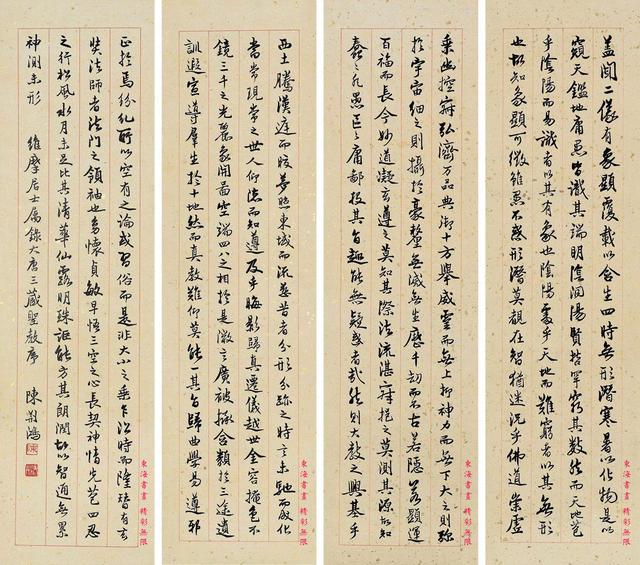 蓋聞二儀有象顯覆載以含生四時無形潛寒暑以化物是以
窺天鑑地庸愚皆識其端明陰洞陽賢哲罕窮其數然而天地苞
乎陰陽而易識者以其有象也陰陽處乎天地而難窮者以其無形
也故知象顯可徵雖愚不惑形潛莫覩在智猶迷況乎佛道崇虛
乘幽控寂弘濟萬品典御十方舉威靈而無上抑神力而無下大之則彌
於宇宙細之則攝於豪釐無滅無生歷千劫而不古若隱若顯運
百福而長今妙道凝玄遵之莫知其際法流湛寂挹之莫測其源故知
蠢蠢凡愚區區庸鄙投其旨趣能無疑惑者哉然則大教之興基乎
西土騰漢庭而皎夢照東域而流慈昔者分形分跡之時言未馳而成化
當常現常之世人仰德而知遵及乎晦影歸真遷儀越世金容掩色不
鏡三千之光麗象開圖空端四八之相於是微言廣被拯含類於三途遺
訓遐宣導羣生於十地然而真教難仰莫能一其旨歸曲學易遵邪
正於焉紛糺所以空有之論或習俗而是非大小之乘乍沿時而隆替有玄
奘法師者法門之領袖也幼懷貞敏早悟三空之心長契神情先苞四忍
之行松風水月未足比其清華仙露明珠詎能方其朗潤故以智通無累
神測未形 維摩居士屬錄大唐三藏聖教序 陳荊鴻
東海書畫 精彩無限
東海書畫 精彩無限
東海書畫 精彩無限
東海書畫 精彩無限